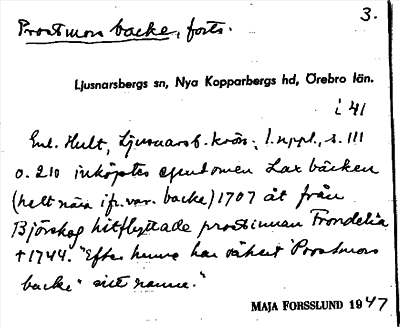 3.
Prostmors backe, forts.
Ljusnarsbergs sn, Nya Kopparbergs hd, Örebro län.
i 41
Enl. Hult, Ljusnarsb. krön., 1. uppl., s. 111
o. 210 inköptes egendomen Laxbäcken
(helt nära ifr. var. backe) 1707 åt från
Björskog hitflyttade prostinnan Frondelia
† 1744. "Efter henne har säkert Prostmors
backe" sitt namn."
MAJA FORSSLUND 1947